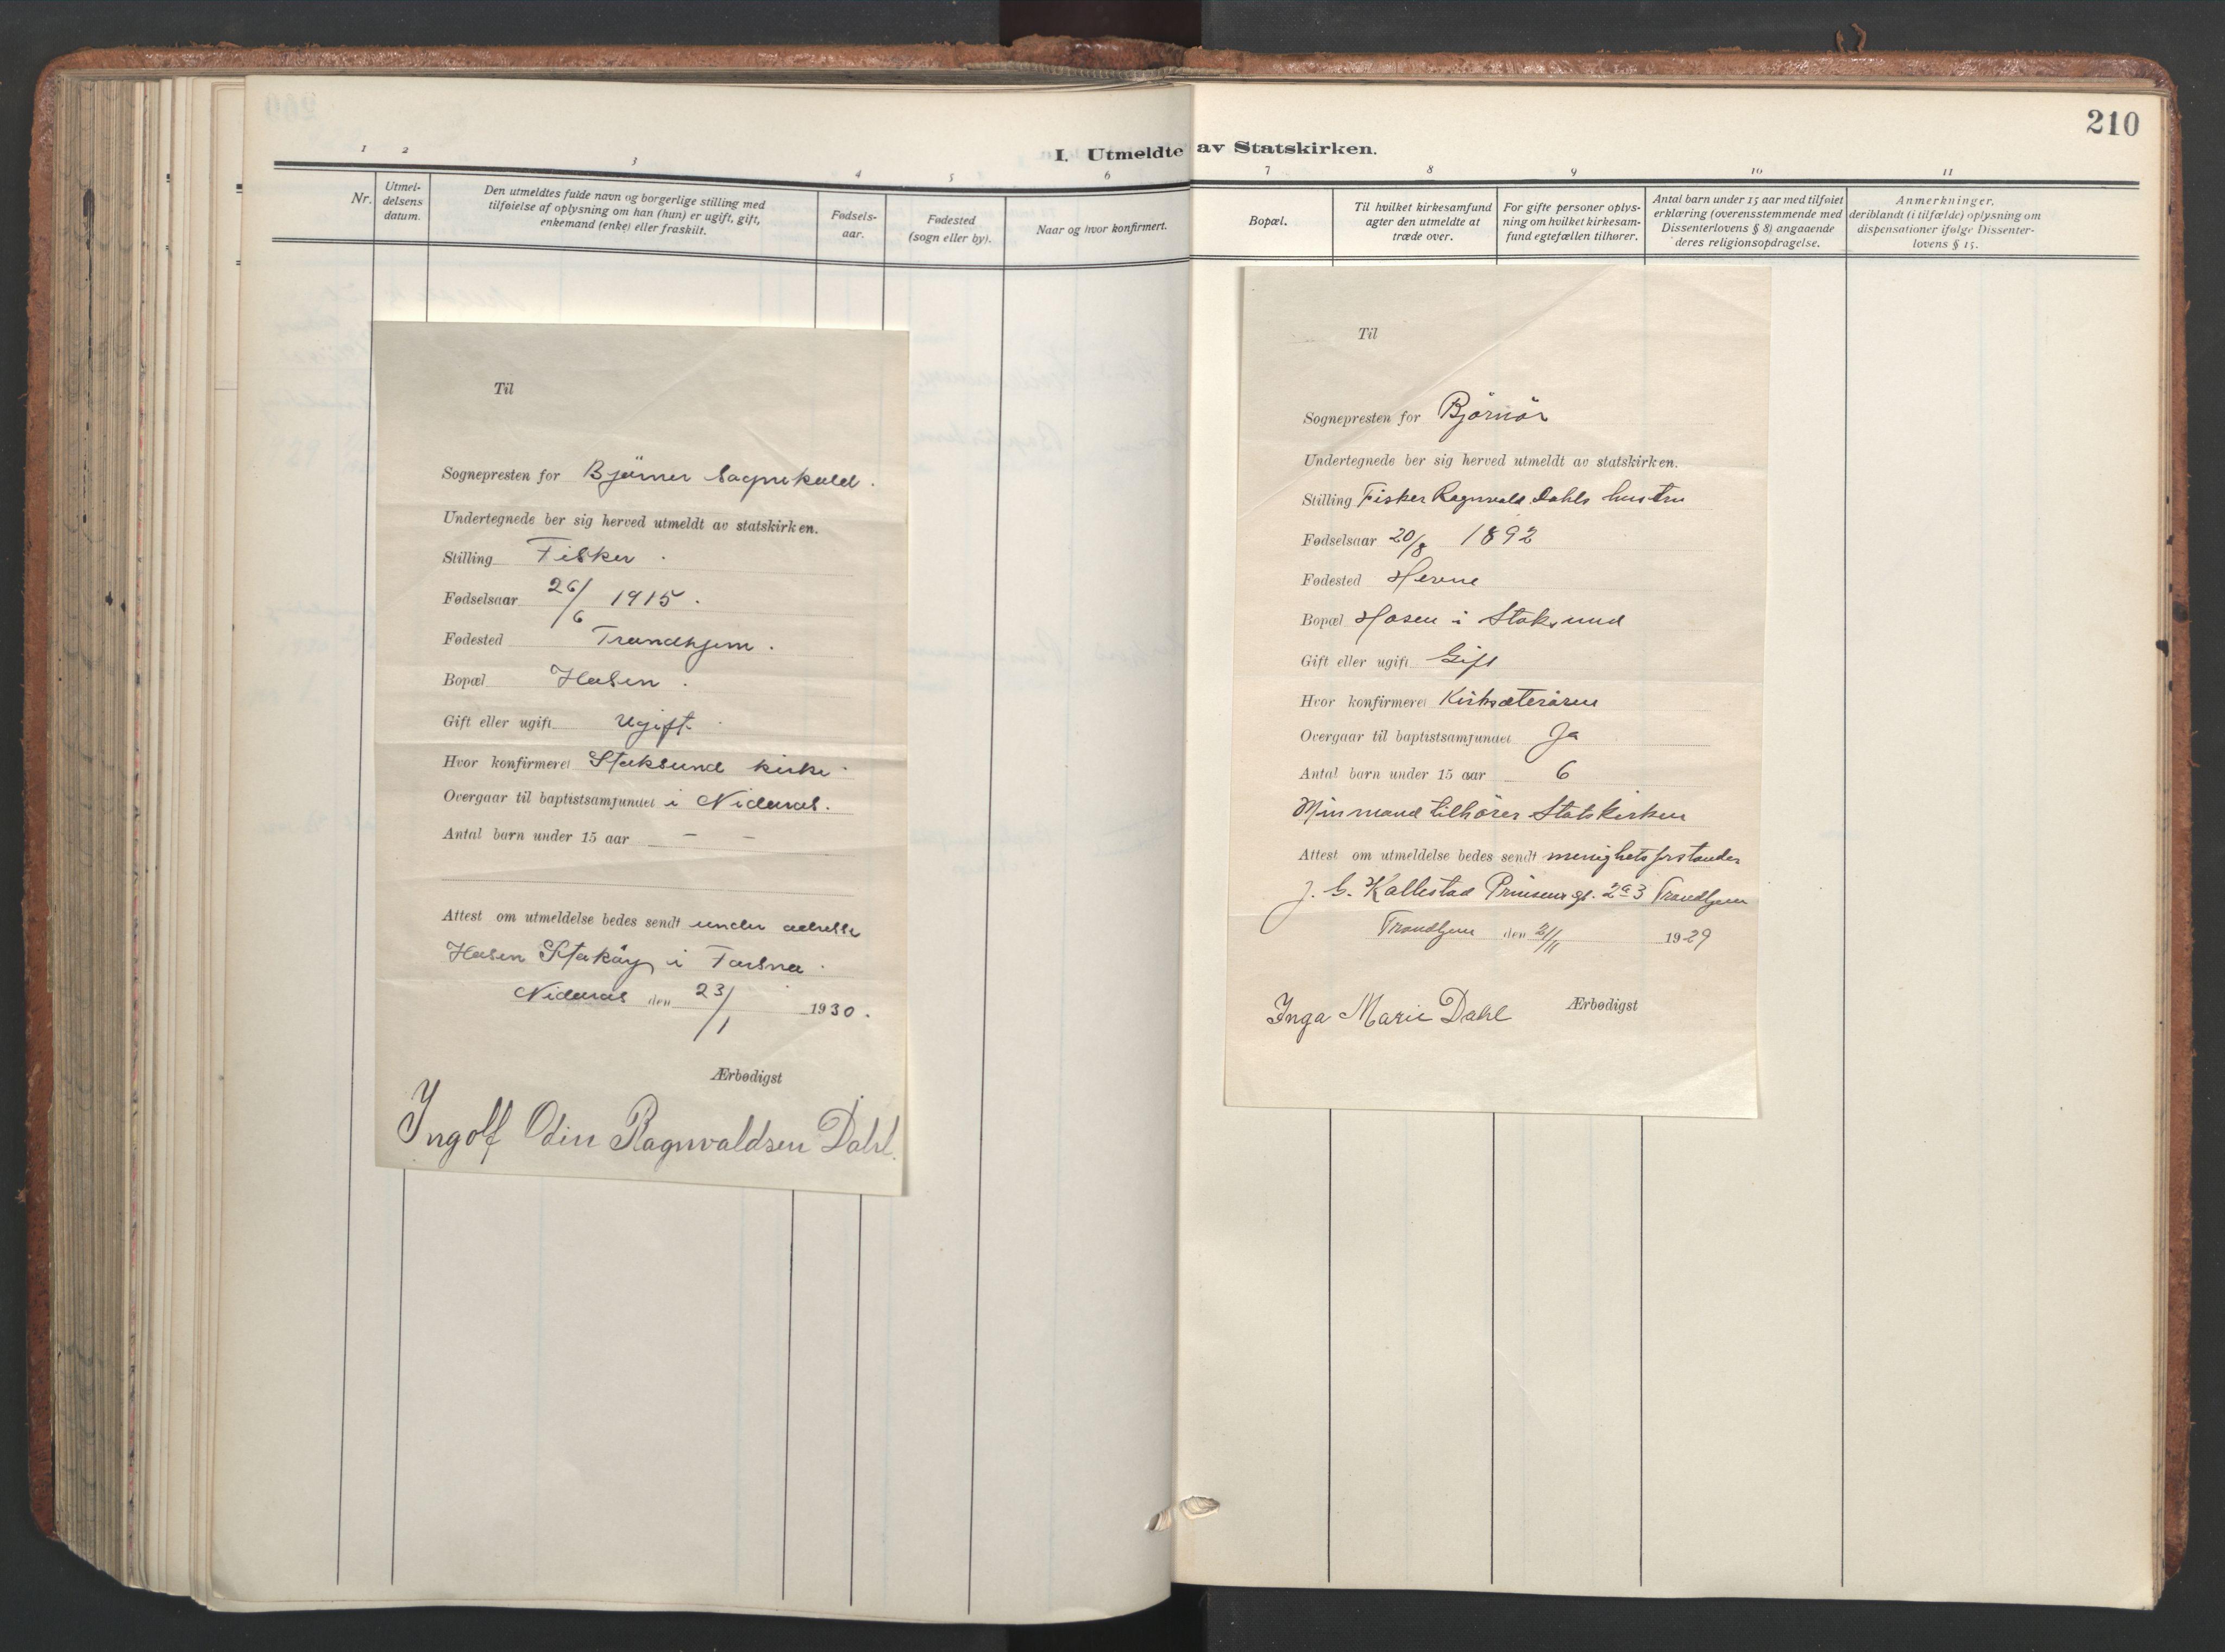 210
I. Utmeldte av Statskirken.
1 2 3 4 5 6 7 8 9 10 11
Nr.
Utmel-
delsens
datum.
Den utmeldtes fulde navn og borgerlige stilling med
tilføielse af oplysning om han (hun) er ugift, gift,
enkemand (enke) eller fraskilt.
Fødsels-
aar.
Fødested
(sogn eller by).
Naar og hvor konfirmert.
Bopæl.
Til hvilket kirkesamfund
agter den utmeldte at
træde over.
For gifte personer oplys-
ning om hvilket kirkesam-
fund egtefællen tilhører.
Antal barn under 15 aar med tilføiet
erklæring (overensstemmende med
Dissenterlovens § 8) angaaende
deres religionsopdragelse.
Anmerkninger,
deriblandt (i tilfælde) oplysning om
dispensationer ifølge Dissenter-
lovens § 15.
Til
Sognepresten for Björnör Sognekald.
Undertegnede ber sig herved utmeldt av statskirken.
Stilling Fisker.
Fødselsaar 26/6 1915.
Fødested Trondhjem.
Bopæl Hosen.
Gift eller ugift Ugift.
Hvor konfirmeret Stoksund kirke.
Overgaar til baptistsamfundet i Nidaros.
Antal barn under 15 aar – –
Attest om utmeldelse bedes sendt under adresse
Hosen Stokøy i Fosna.
Nidaros den 23/1 1930.
Ærbødigst
Ingolf Odin Ragnvaldsen Dahl.
Til
Sognepresten for Björnör
Undertegnede ber sig herved utmeldt av statskirken.
Stilling Fisker Ragnvald Dahls hustru
Fødselsaar 20/8 1892
Fødested Hevne
Bopæl Hosen i Stoksund
Gift eller ugift Gift
Hvor konfirmeret Kirksæterören
Overgaar til baptistsamfundet Ja
Antal barn under 15 aar 6
Min mand tilhörer Statskirken
Attest om utmeldelse bedes sendt menighetsforstander
J. G. Kallestad Prinsens gt. 2a3 Trondhjem
Trondhjem den 21/11 1929
Ærbødigst
Inga Marie Dahl